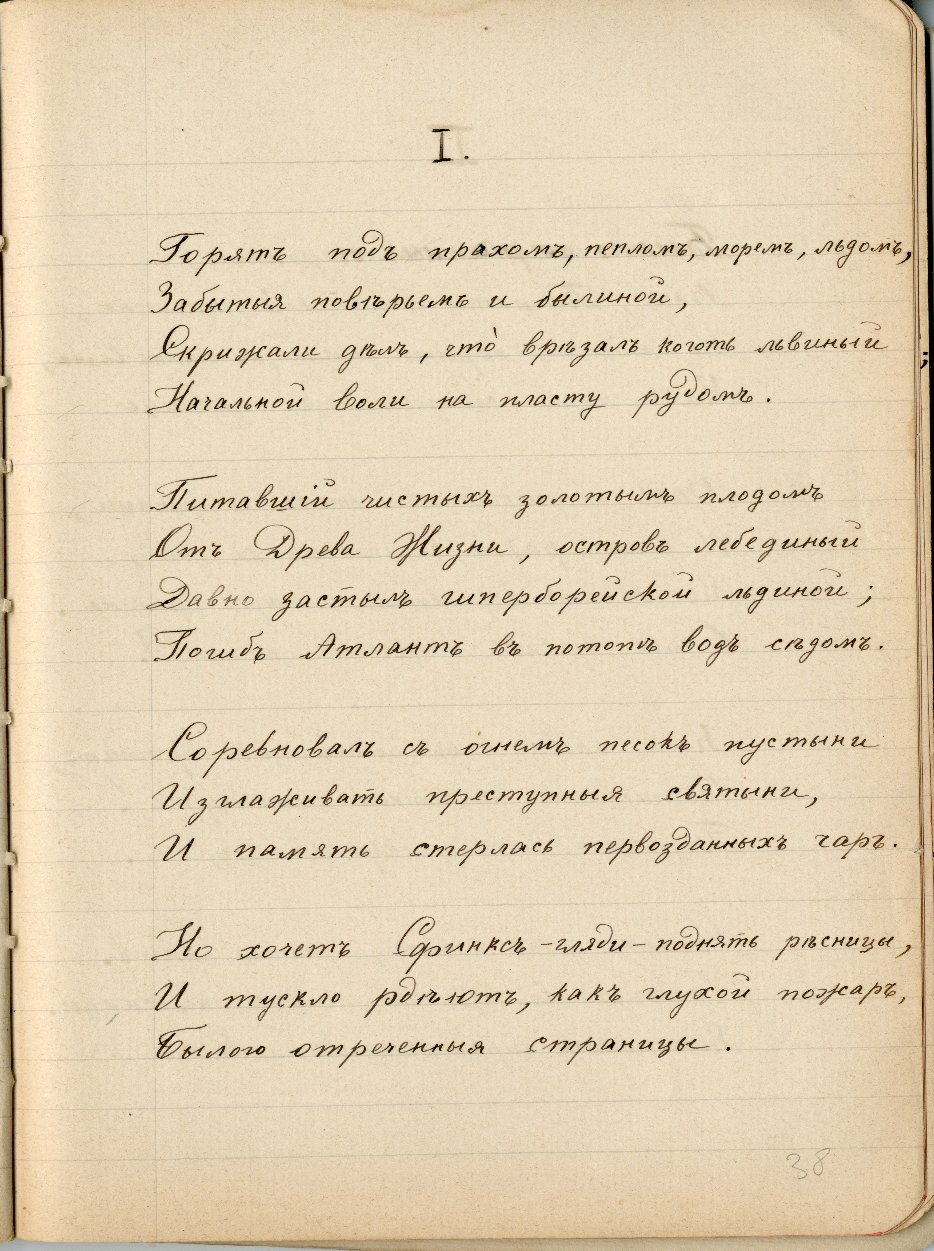 I.
Горятъ подъ прахомъ, пепломъ, моремъ, льдомъ,
Забытыя повѣрьемъ и былиной,
Скрижали дѣлъ, что̀ врѣзалъ коготь львиный
Начальной Воли на пласту рудомъ.
Питавшій чистыхъ золотымъ плодомъ
Отъ Древа Жизни, островъ лебединый
Давно застылъ гиперборейской льдиной;
Погибъ Атлантъ въ потопѣ водъ сѣдомъ.
Соревновалъ съ огнемъ песокъ пустыни
Изглаживать преступныя святыни,
И память стерлась первозданныхъ чаръ.
Но хочетъ Сфинксъ – гляди – поднять рѣсницы,
И тускло рдѣютъ, какъ глухой пожаръ,
Былого отреченныя страницы.
38